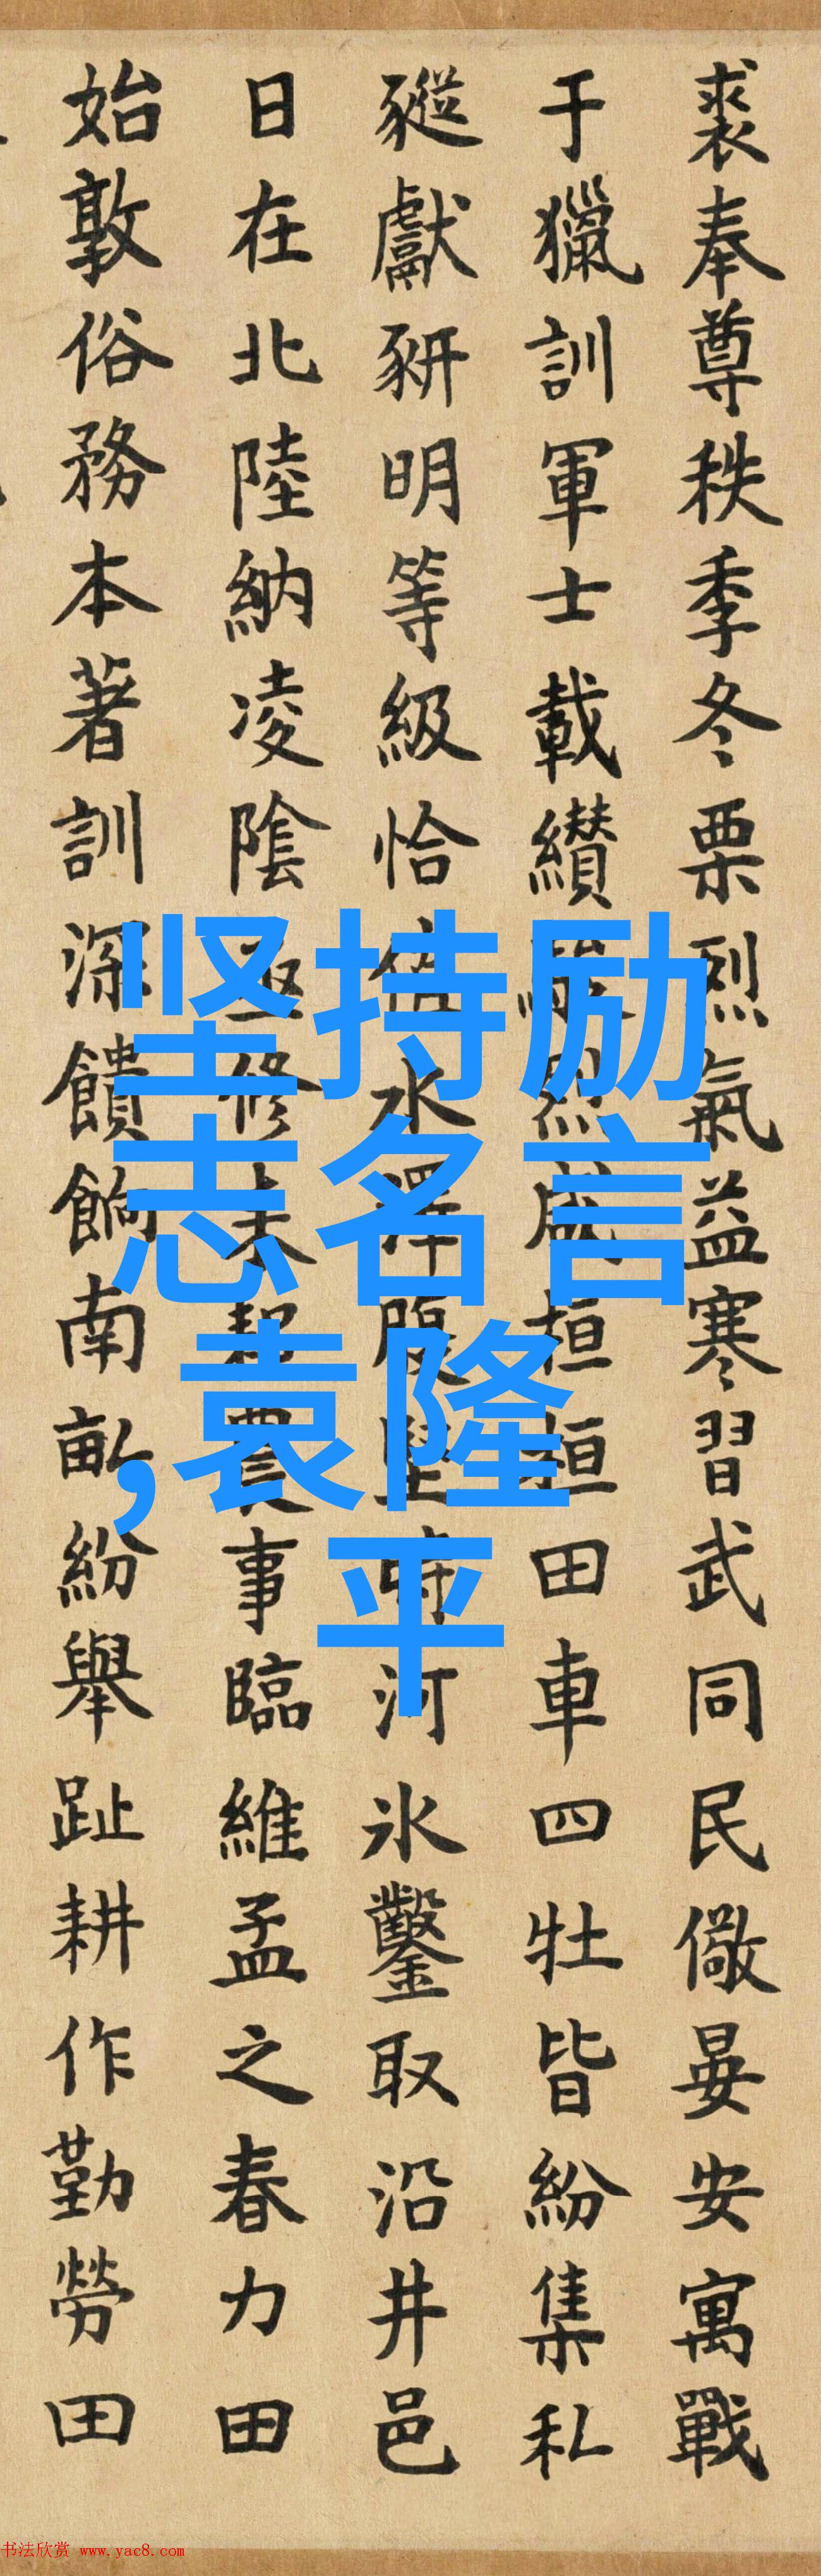 裘奉尊秩季冬栗烈氣益寒習武同民儆晏安寓戰
于獵訓軍士載纘武烈咸桓桓田車四牡皆紛集私
豵獻豣明等級恰值水澤腹堅時河氷鑿取沿井邑
日在北陸納凌陰亟修耒耜農事臨維孟之春力田
始敦俗務本著訓深饋餉南畝紛舉趾耕作勤勞田
坚持励
志名言
,袁隆
平
书法欣赏 www.yac8.com